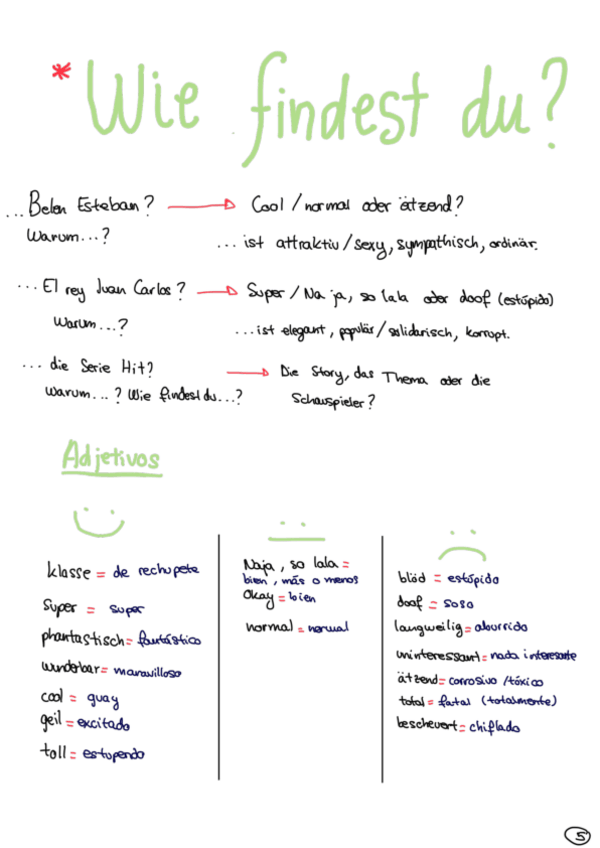 *Wie findest du?
... Belen Esteban? → Cool / normal oder ätzend?
Warum...? ... ist attraktiv / sexy, sympathisch, ordinär.
... El rey Juan Carlos? → Super / Na ja, so lala oder doof (estúpido)
Warum...? ... ist elegant, populär / solidarisch, korrupt.
... die Serie Hit? → Die Story, das Thema oder die
Warum...? Wie findest du...? Schauspieler?
Adjetivos
klasse = de rechupete
super = super
phantastisch = fantástico
wunderbar = maravilloso
cool = guay
geil = excitado
toll = estupendo
Naja, so lala =
bien, más o menos
Okay = bien
normal = normal
blöd = estúpido
doof = soso
langweilig = aburrido
uninteressant = nada interesante
ätzend = corrosivo / tóxico
total = fatal (totalmente)
bescheuert = chiflado
5